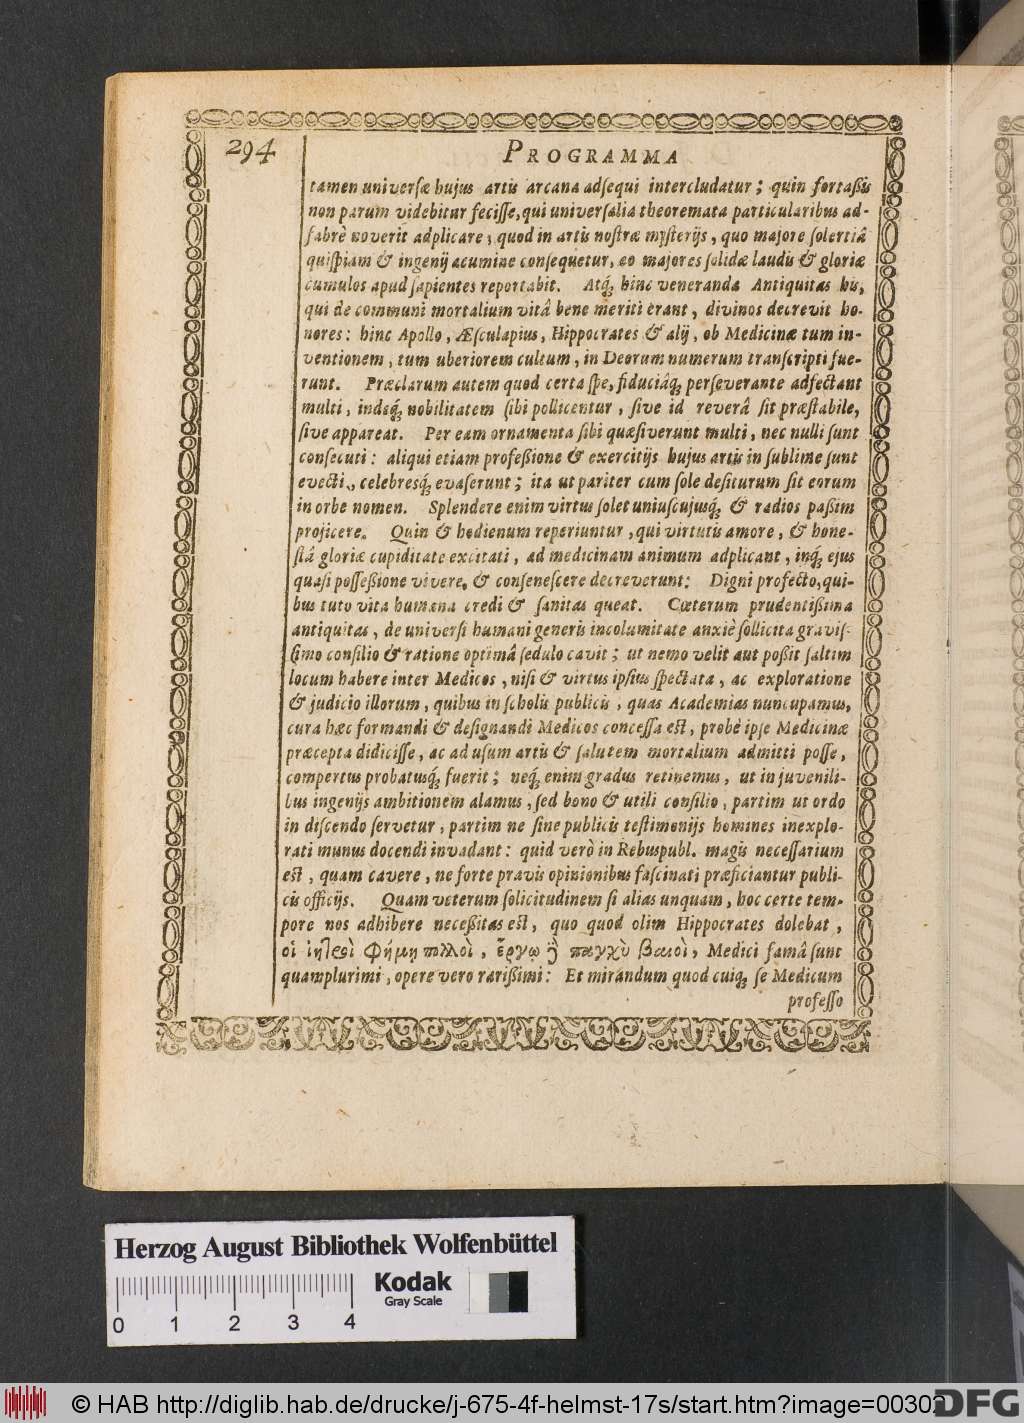 294
PROGRAMMA
tamen universæ hujus artis arcana adsequi intercludatur; quin fortaßis
non parum videbitur fecisse, qui universalia theoremata particularibus ad-
fabrè noverit adplicare; quod in artis nostræ mysterijs, quo majore solertiâ
quispiam & ingenij acumine consequetur, eo majores solidæ laudis & gloriæ
cumulos apud sapientes reportabit. Atq́; hinc veneranda Antiquitas his,
qui de communi mortalium vitâ bene meriti erant, divinos decrevit ho-
nores: hinc Apollo, Æsculapius, Hippocrates & alij, ob Medicinæ tum in-
ventionem, tum uberiorem cultum, in Deorum numerum transcripti fue-
runt. Præclarum autem quod certa spe, fiduciâq́; perseverante adfectant
multi, indeq́; nobilitatem sibi pollicentur, sive id reverâ sit præstabile,
sive appareat. Per eam ornamenta sibi quæsiverunt multi, nec nulli sunt
consecuti: aliqui etiam profeßione & exercitijs hujus artis in sublime sunt
evecti, celebresq́; evaserunt; ita ut pariter cum sole desiturum sit eorum
in orbe nomen. Splendere enim virtus solet uniuscujusq́; & radios paßim
projicere. Quin & hodienum reperiuntur, qui virtutis amore, & hone-
stâ gloriæ cupiditate excitati, ad medicinam animum adplicant, inq́; ejus
quasi posseßione vivere, & consenescere decreverunt: Digni profecto, qui-
bus tuto vita humana credi & sanitas queat. Cæterum prudentißima
antiquitas, de universi humani generis incolumitate anxiè sollicita gravis-
simo consilio & ratione optimâ sedulo cavit; ut nemo velit aut poßit saltim
locum habere inter Medicos, nisi & virtus ipsius spectata, ac exploratione
& judicio illorum, quibus in scholis publicis, quas Academias nuncupamus,
cura hæc formandi & designandi Medicos concessa est, probè ipse Medicinæ
præcepta didicisse, ac ad usum artis & salutem mortalium admitti posse,
compertus probatusq́; fuerit; neq́; enim gradus retinemus, ut in juvenili-
bus ingenijs ambitionem alamus, sed bono & utili consilio, partim ut ordo
in discendo servetur, partim ne sine publicis testimonijs homines inexplo-
rati munus docendi invadant: quid verò in Rebuspubl. magis necessarium
est, quam cavere, ne forte pravis opinionibus fascinati præficiantur publi-
cis officijs. Quam veterum solicitudinem si alias unquam, hoc certe tem-
pore nos adhibere neceßitas est, quo quod olim Hippocrates dolebat,
οἱ ἰητροὶ φήμῃ πολλοὶ, ἔργῳ ἢ παγχὺ βαιοὶ, Medici famâ sunt
quamplurimi, opere vero rarißimi: Et mirandum quod cuiq́; se Medicum
professo
Herzog August Bibliothek Wolfenbüttel
Kodak
Gray Scale
0 1 2 3 4
© HAB http://diglib.hab.de/drucke/j-675-4f-helmst-17s/start.htm?image=00302
DFG